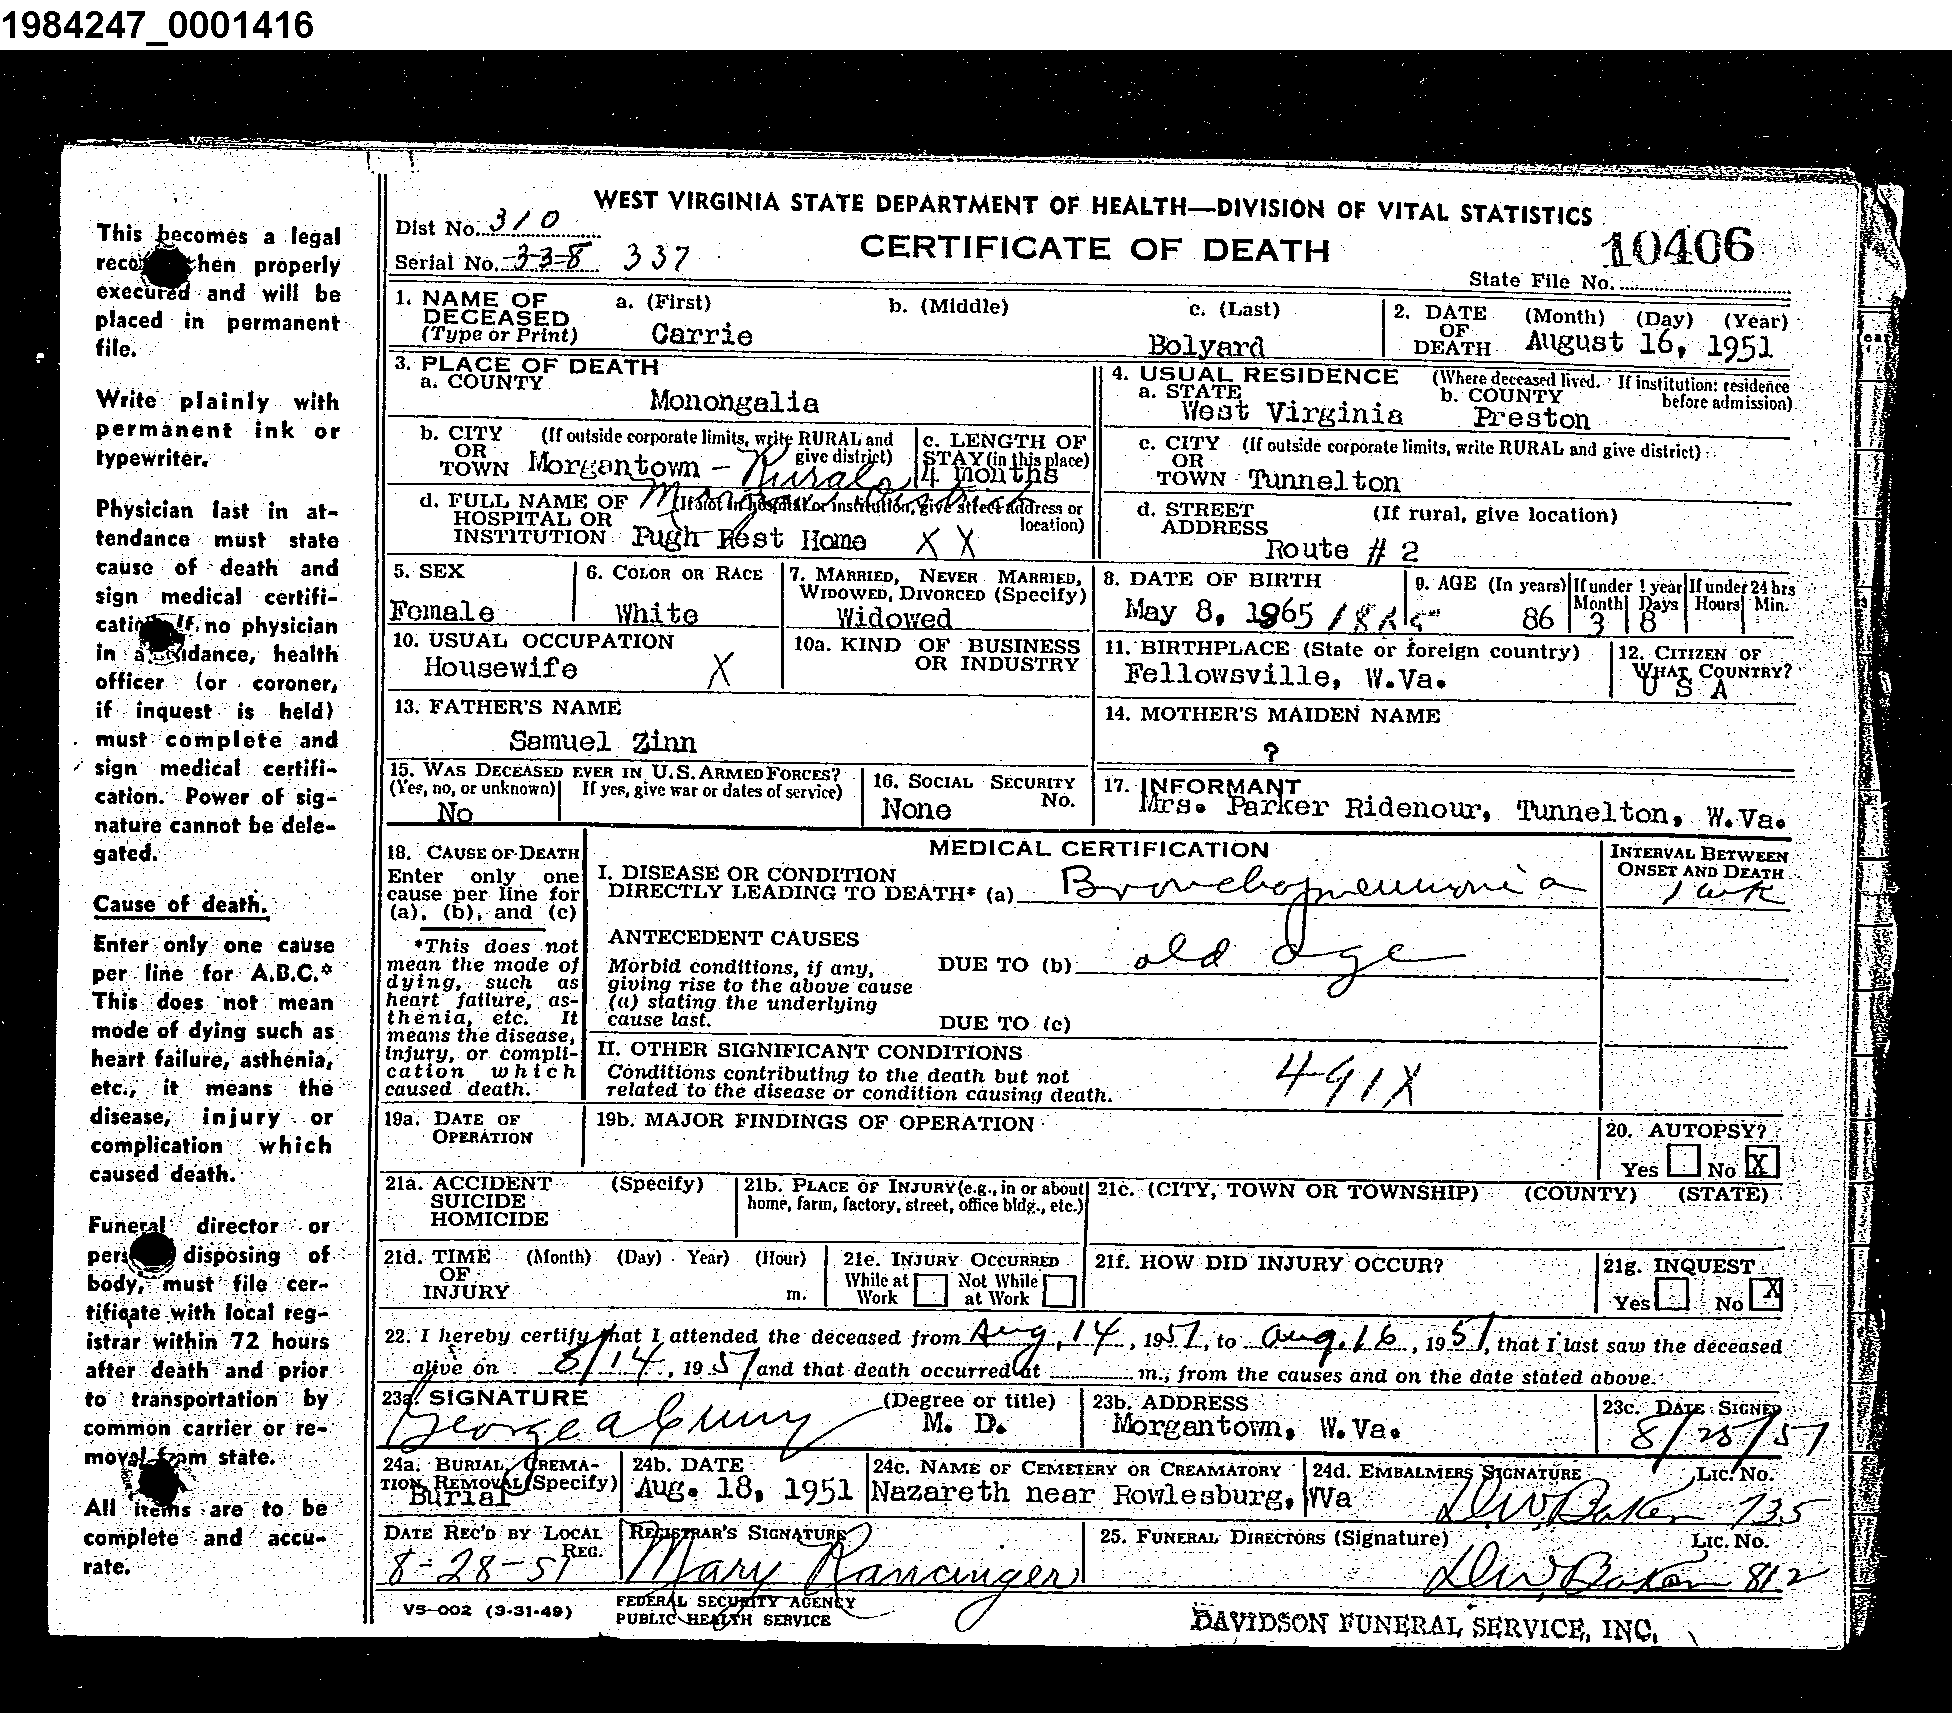 1984247_0001416
WEST VIRGINIA STATE DEPARTMENT OF HEALTH—DIVISION OF VITAL STATISTICS
CERTIFICATE OF DEATH
Dist No. 310
Serial No. 338 337
10406
State File No.
1. NAME OF DECEASED (Type or Print)
a. (First) b. (Middle) c. (Last)
Carrie Bolyard
2. DATE OF DEATH (Month) (Day) (Year)
August 16, 1951
3. PLACE OF DEATH
a. COUNTY
Monongalia
4. USUAL RESIDENCE (Where deceased lived. If institution: residence before admission)
a. STATE West Virginia b. COUNTY Preston
b. CITY OR TOWN (If outside corporate limits, write RURAL and give district)
Morgantown - Rural
c. LENGTH OF STAY (in this place)
4 Months
c. CITY OR TOWN (If outside corporate limits, write RURAL and give district)
Tunnelton
d. FULL NAME OF HOSPITAL OR INSTITUTION (If not in hospital or institution, give street address or location)
Morgan District
Pugh Rest Home X X
d. STREET ADDRESS (If rural, give location)
Route # 2
5. SEX
Female
6. COLOR OR RACE
White
7. MARRIED, NEVER MARRIED, WIDOWED, DIVORCED (Specify)
Widowed
8. DATE OF BIRTH
May 8, 1865 / 1865
9. AGE (In years) If under 1 year If under 24 hrs
Month Days Hours Min.
86 3 8
10. USUAL OCCUPATION
Housewife X
10a. KIND OF BUSINESS OR INDUSTRY
11. BIRTHPLACE (State or foreign country)
Fellowsville, W.Va.
12. CITIZEN OF WHAT COUNTRY?
U S A
13. FATHER'S NAME
Samuel Zinn
14. MOTHER'S MAIDEN NAME
?
15. WAS DECEASED EVER IN U.S. ARMED FORCES?
(Yes, no, or unknown) If yes, give war or dates of service)
No
16. SOCIAL SECURITY No.
None
17. INFORMANT
Mrs. Parker Ridenour, Tunnelton, W.Va.
18. CAUSE OF DEATH
Enter only one cause per line for (a), (b), and (c)
*This does not mean the mode of dying, such as heart failure, asthenia, etc. It means the disease, injury, or complication which caused death.
MEDICAL CERTIFICATION
INTERVAL BETWEEN ONSET AND DEATH
I. DISEASE OR CONDITION DIRECTLY LEADING TO DEATH* (a) Bronchopneumonia 1 wk
ANTECEDENT CAUSES
Morbid conditions, if any, giving rise to the above cause (a) stating the underlying cause last.
DUE TO (b) old age
DUE TO (c)
II. OTHER SIGNIFICANT CONDITIONS
Conditions contributing to the death but not related to the disease or condition causing death.
491X
19a. DATE OF OPERATION
19b. MAJOR FINDINGS OF OPERATION
20. AUTOPSY?
Yes No X
21a. ACCIDENT SUICIDE HOMICIDE (Specify)
21b. PLACE OF INJURY (e.g., in or about home, farm, factory, street, office bldg., etc.)
21c. (CITY, TOWN OR TOWNSHIP) (COUNTY) (STATE)
21d. TIME OF INJURY (Month) (Day) Year) (Hour) m.
21e. INJURY OCCURRED
While at Work Not While at Work
21f. HOW DID INJURY OCCUR?
21g. INQUEST
Yes No X
22. I hereby certify that I attended the deceased from Aug. 14, 1951, to Aug. 16, 1951, that I last saw the deceased
alive on 8/14, 1951 and that death occurred at m., from the causes and on the date stated above.
23a. SIGNATURE (Degree or title)
M. D.
23b. ADDRESS
Morgantown, W.Va.
23c. DATE SIGNED
8/25/51
24a. BURIAL, CREMATION REMOVAL (Specify)
Burial
24b. DATE
Aug. 18, 1951
24c. NAME OF CEMETERY OR CREAMATORY
Nazareth near Rowlesburg, WVa
24d. EMBALMERS SIGNATURE Lic. No.
D.W. Baker 735
DATE REC'D BY LOCAL REG.
8-28-51
REGISTRAR'S SIGNATURE
Mary Rancinger
25. FUNERAL DIRECTORS (Signature) Lic. No.
D.W. Baker 812
VS-002 (3-31-49)
FEDERAL SECURITY AGENCY
PUBLIC HEALTH SERVICE
DAVIDSON FUNERAL SERVICE, INC.
This becomes a legal
when properly
executed and will be
placed in permanent
file.
Write plainly with
permanent ink or
typewriter.
Physician last in at-
tendance must state
cause of death and
sign medical certifi-
If no physician
in
health
officer (or coroner,
if inquest is held)
must complete and
sign medical certifi-
cation. Power of sig-
nature cannot be dele-
gated.
Cause of death.
Enter only one cause
per line for A.B.C.*
This does not mean
mode of dying such as
heart failure, asthenia,
etc., it means the
disease, injury or
complication which
caused death.
Funeral director or
disposing of
body, must file cer-
tificate with local reg-
istrar within 72 hours
after death and prior
to transportation by
common carrier or re-
moval from state.
All items are to be
complete and accu-
rate.